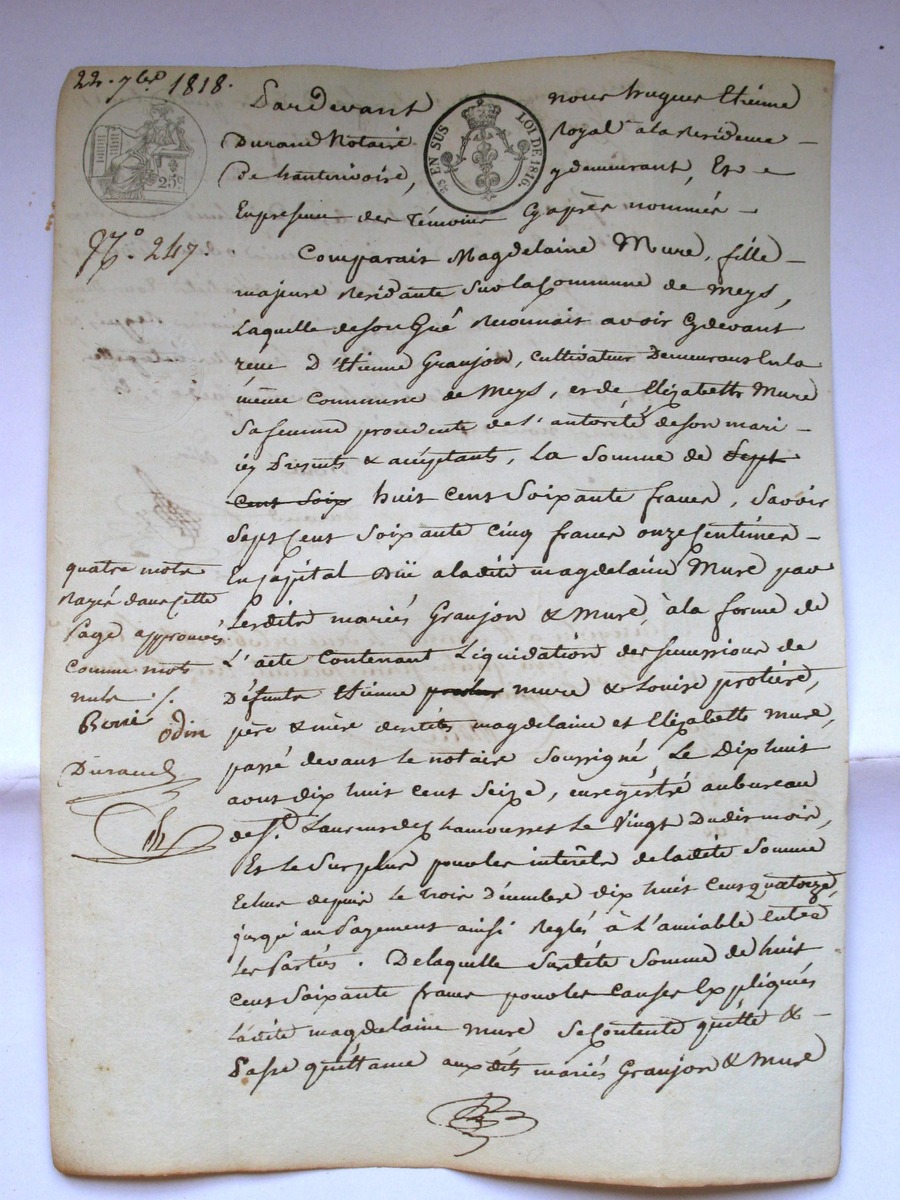 22. 7bre 1818.
Pardevant nous hugues Etienne
EN SUS LOI DE 1816.
25c
Durand Notaire Royal à la Residence
de hauterivoire, y demeurant, Et
En presence des Témoins Cyaprès nommés
N.° 247.
Comparait Magdelaine Mure, fille
majeure Residante Sur la Commune de Meys,
Laquelle de son Gré Reconnait avoir Cydevant
reçu d'Etienne Granjon, Cultivateur Demeurant En la
même Commune de Meys, et de Elizabeth Mure
Sa femme procedente de l'autorité de son mari
icy Presents & acceptants, La Somme de Sept
Cent Soix huit Cent Soixante francs, Savoir
Sept Cent Soixante Cinq francs onze Centimes
En Capital Dûe a ladite magdelaine Mure par
Lesdits mariés Granjon & Mure, à la forme de
L'acte Contenant Liquidation des successions de
Défunts Etienne mure & Louise protière,
père & mère desdites magdelaine et Elizabeth Mure,
passé devant le notaire Soussigné, Le Dix huit
aout dix huit cent Seize, enregistré au bureau
de St. Laurent de Chamousset Le Vingt Dudit mois,
Et le Surplus pour les intérêts de ladite Somme
Echus depuis le trois Décembre dix huit Cent quatorze,
jusqu'au Payement ainsi Reglés à L'amiable entre
Les Parties. De laquelle Susdite Somme de huit
Cent Soixante francs pour les Causes Expliquées
Ladite magdelaine mure Se Contente quitte &
Passe quittance auxdits mariés Granjon & Mure
quatre mots
Rayés dans Cette
Page approuvés
Comme mots
nuls ./.
odin
Durand